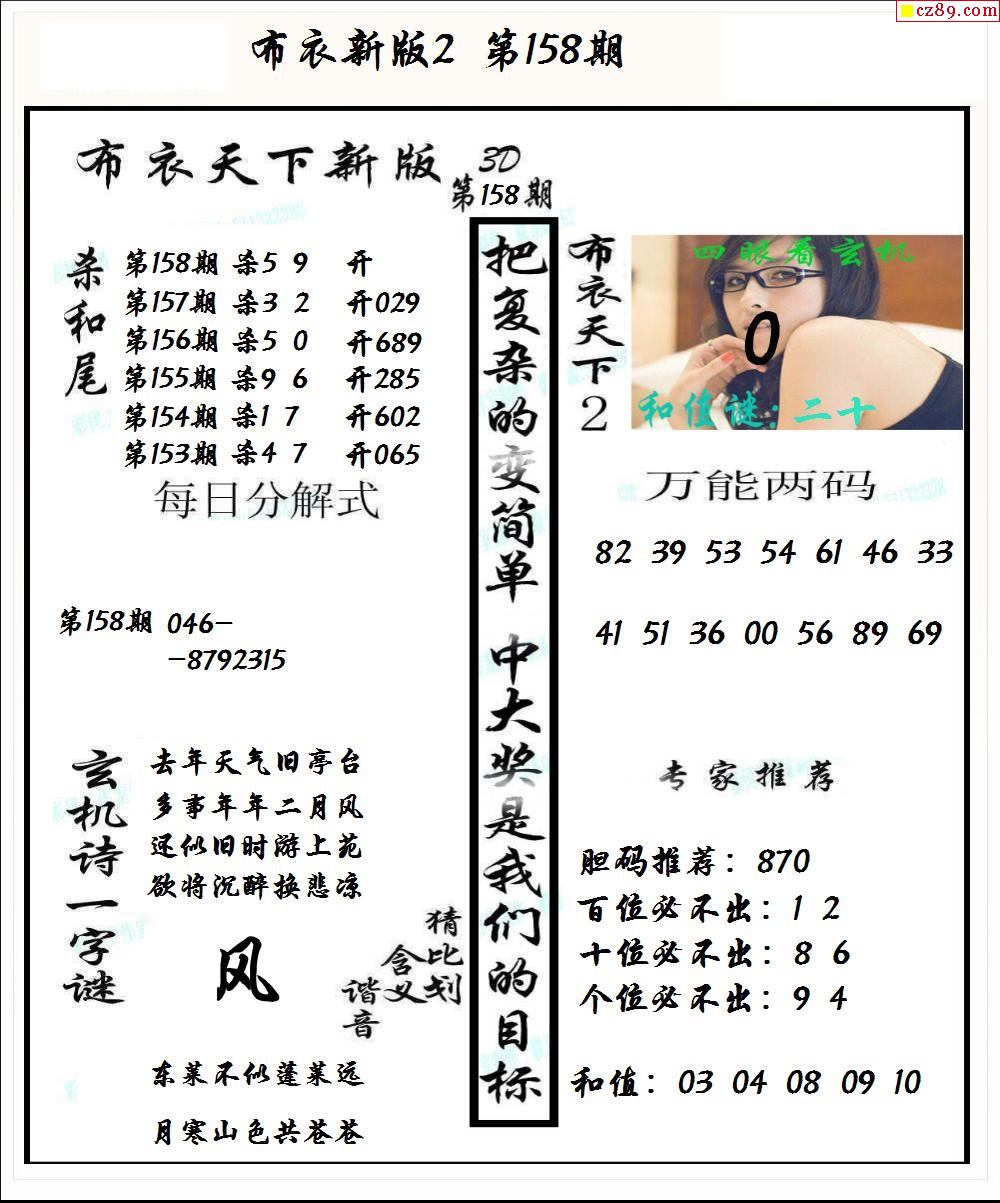 cz89.com
布衣新版2 第158期
布衣天下新版
3D
第158期
杀和尾
第158期 杀5 9 开
第157期 杀3 2 开029
第156期 杀5 0 开689
第155期 杀9 6 开285
第154期 杀1 7 开602
第153期 杀4 7 开065
每日分解式
第158期 046-
-8792315
玄机诗一字谜
去年天气旧亭台
多事年年二月风
还似旧时游上苑
欲将沉醉换悲凉
风
猜比划
含义
谐音
东莱不似蓬莱远
月寒山色共苍苍
把复杂的变简单 中大奖是我们的目标
布衣天下2
四眼看玄机
0
和值谜:二十
万能两码
82 39 53 54 61 46 33
41 51 36 00 56 89 69
专家推荐
胆码推荐：870
百位必不出：1 2
十位必不出：8 6
个位必不出：9 4
和值：03 04 08 09 10